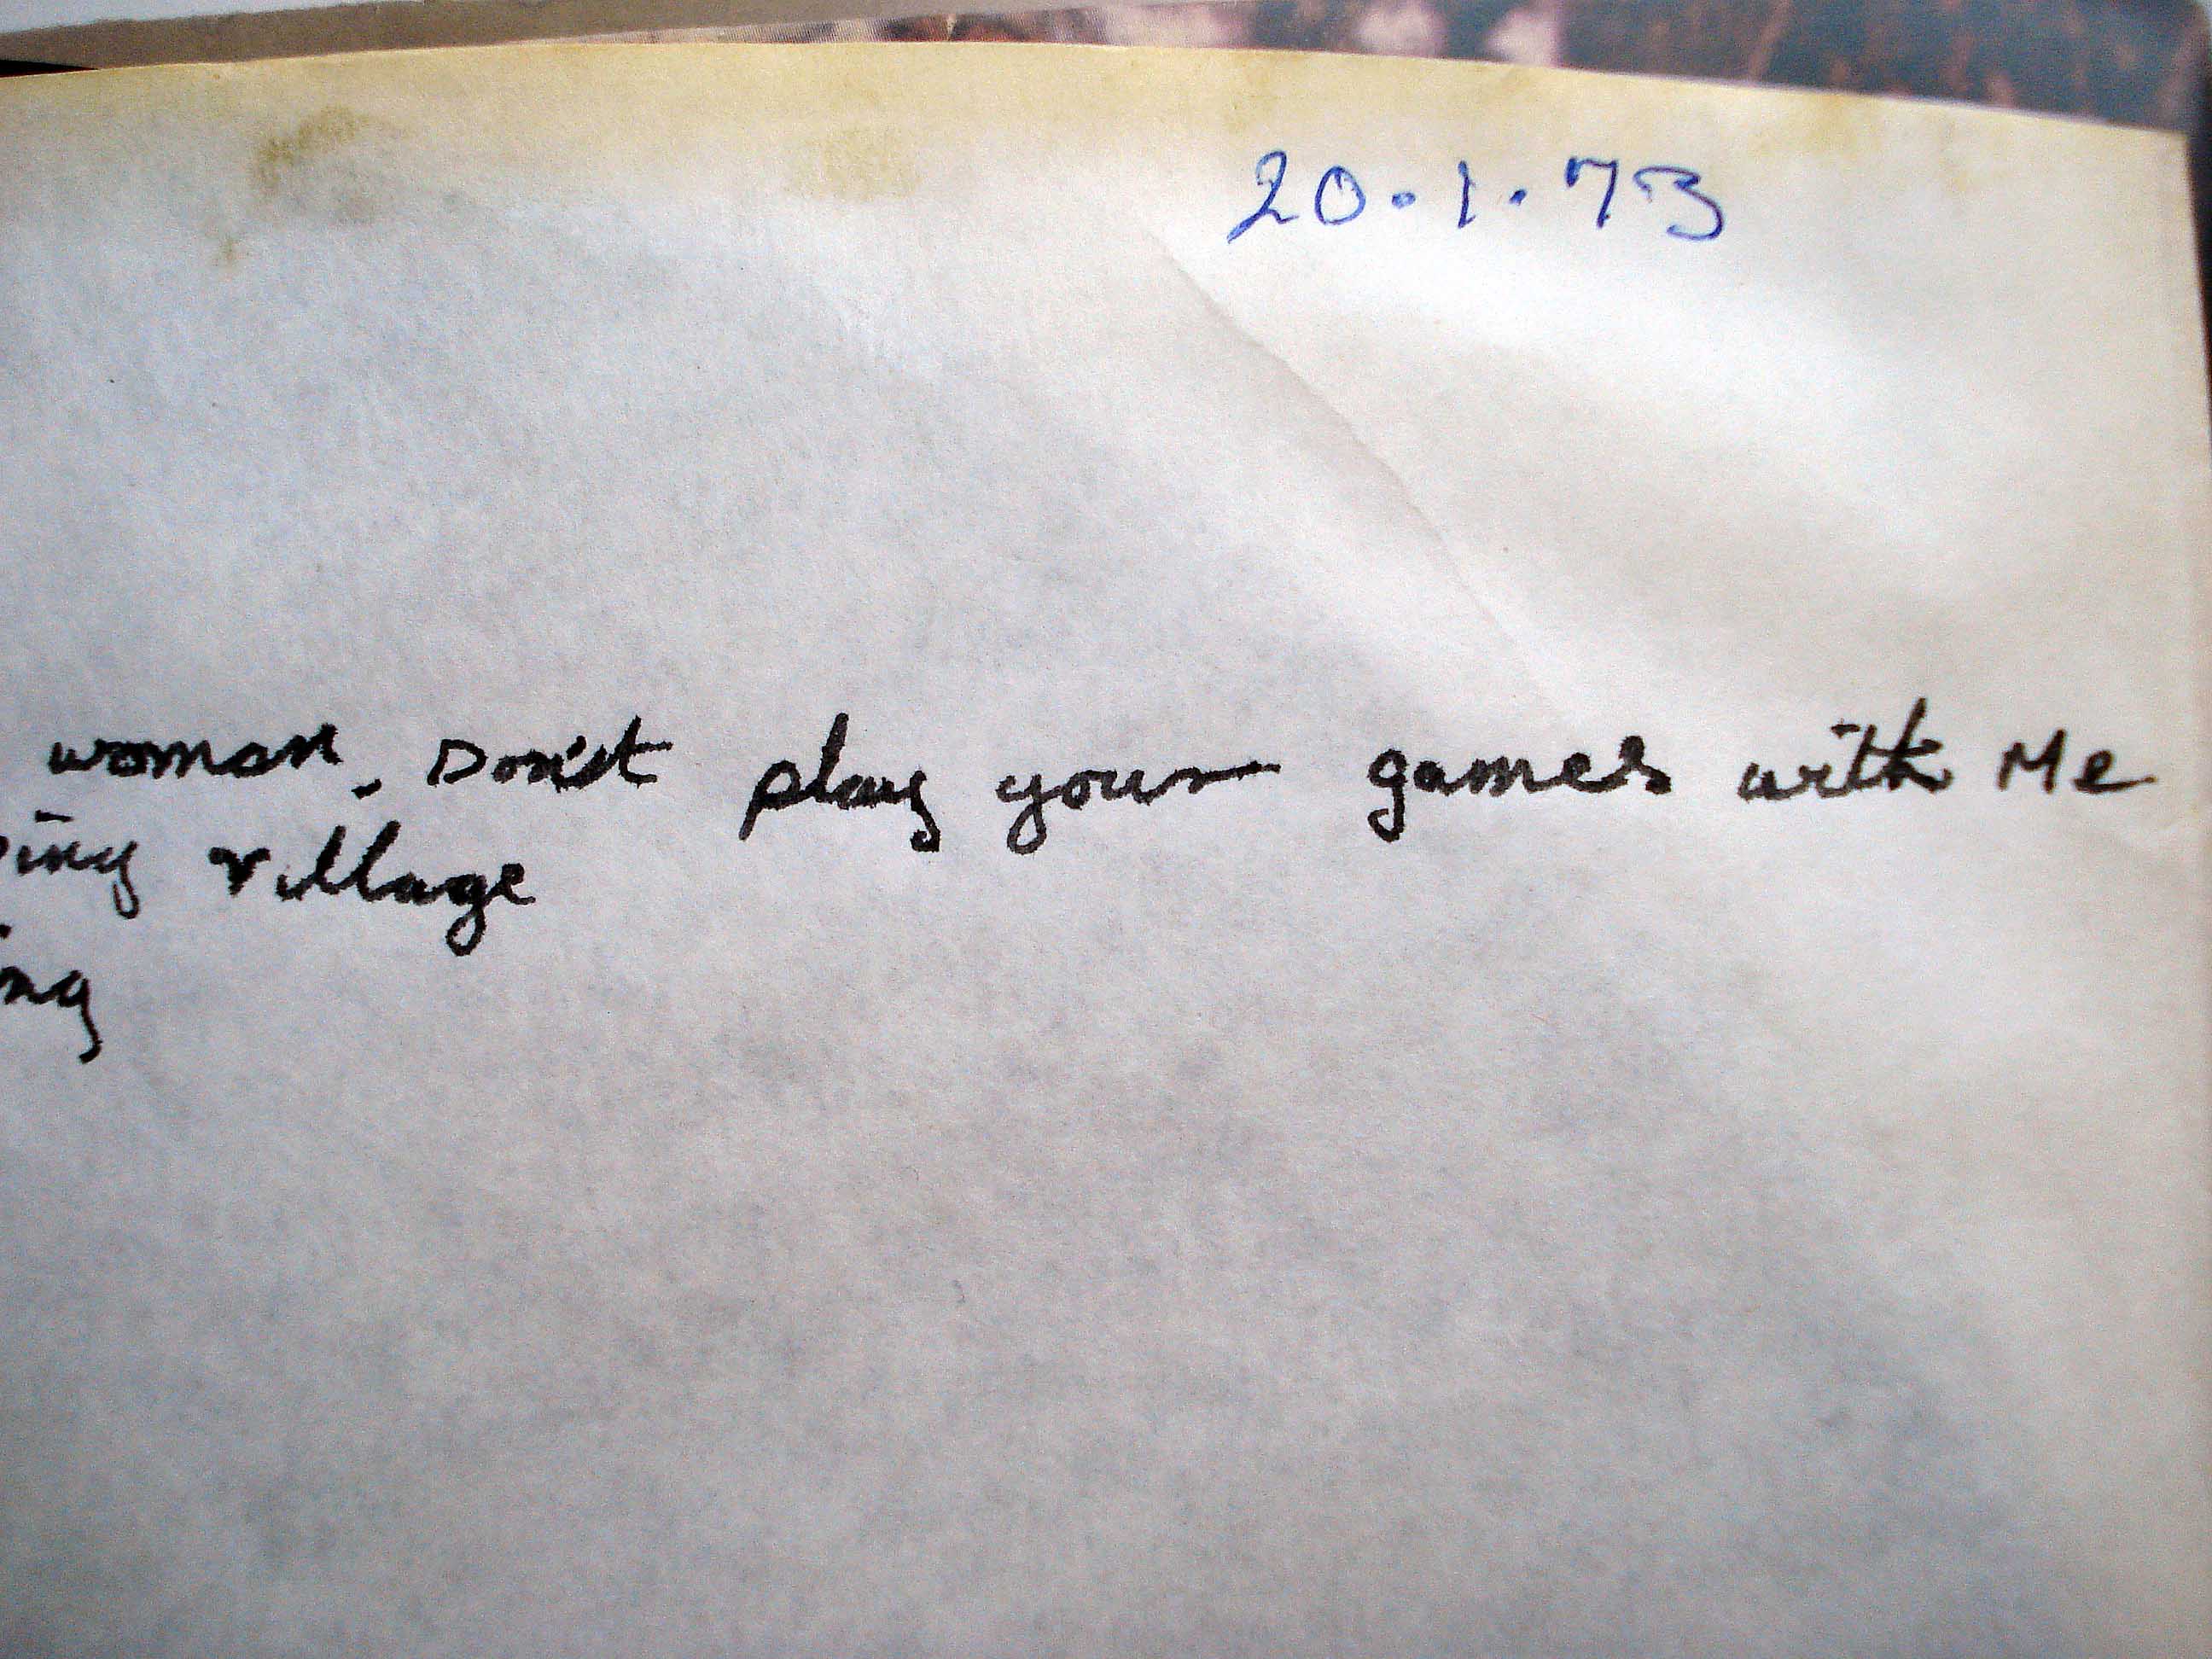 20.1.73
woman. Don't play your games with Me
ing village
ng